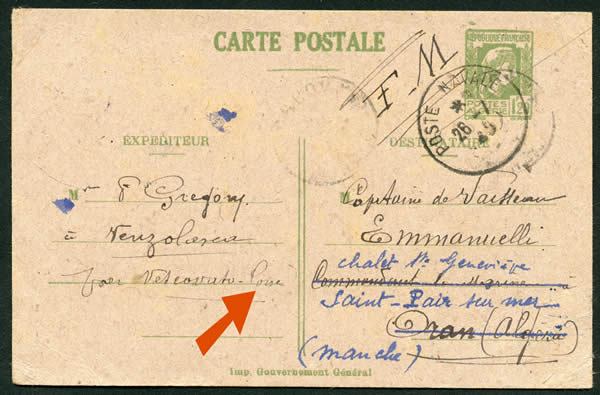 CARTE POSTALE
F-M
REPUBLIQUE FRANÇAISE
POSTES
1.20
POSTE NAVALE
*
26-1
EXPÉDITEUR
DESTINATAIRE
Mr P Gregorj
à Venzolasca
par Vescovato-Corse
Capitaine de Vaisseau
Emmanuelli
chalet Ste Geneviève
Commandant la Marine à
Saint-Pair sur mer
Oran (Algérie)
(manche)
Imp. Gouvernement Général